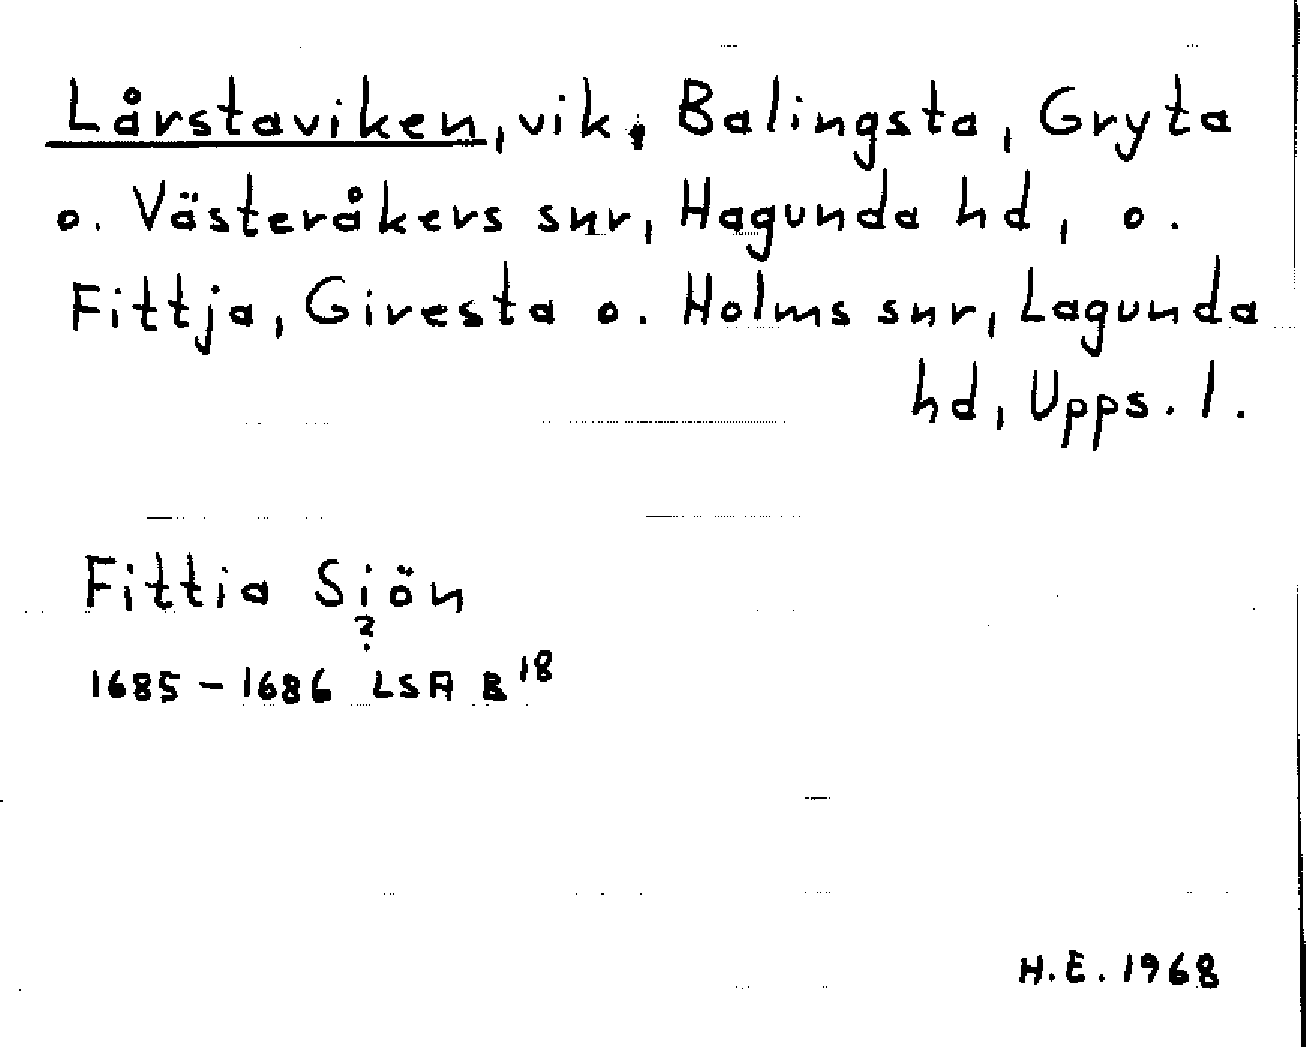 Lårstaviken, vik, Balingsta, Gryta
o. Västeråkers snr, Hagunda hd, o.
Fittja, Giresta o. Holms snr, Lagunda
hd, Upps. l.
Fittia Siön
?
1685 – 1686 LSA B 18
H.E. 1968